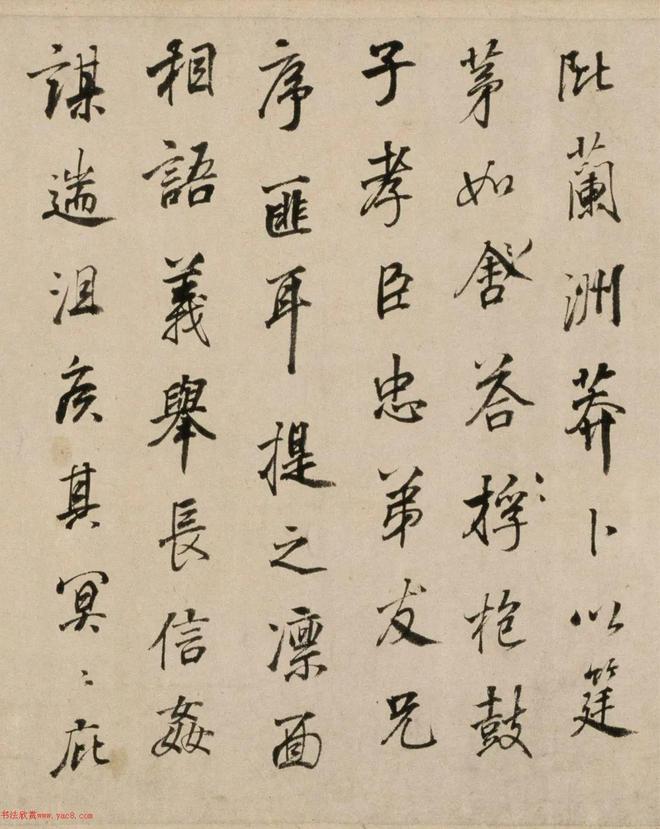 阰蘭洲莽卜以筳
茅如荅桴枹鼓
子孝臣忠弟友兄
序匪耳提之凛面
相語義舉長信姦
謀遄沮矦其冥〻庇
书法欣赏www.yac8.com